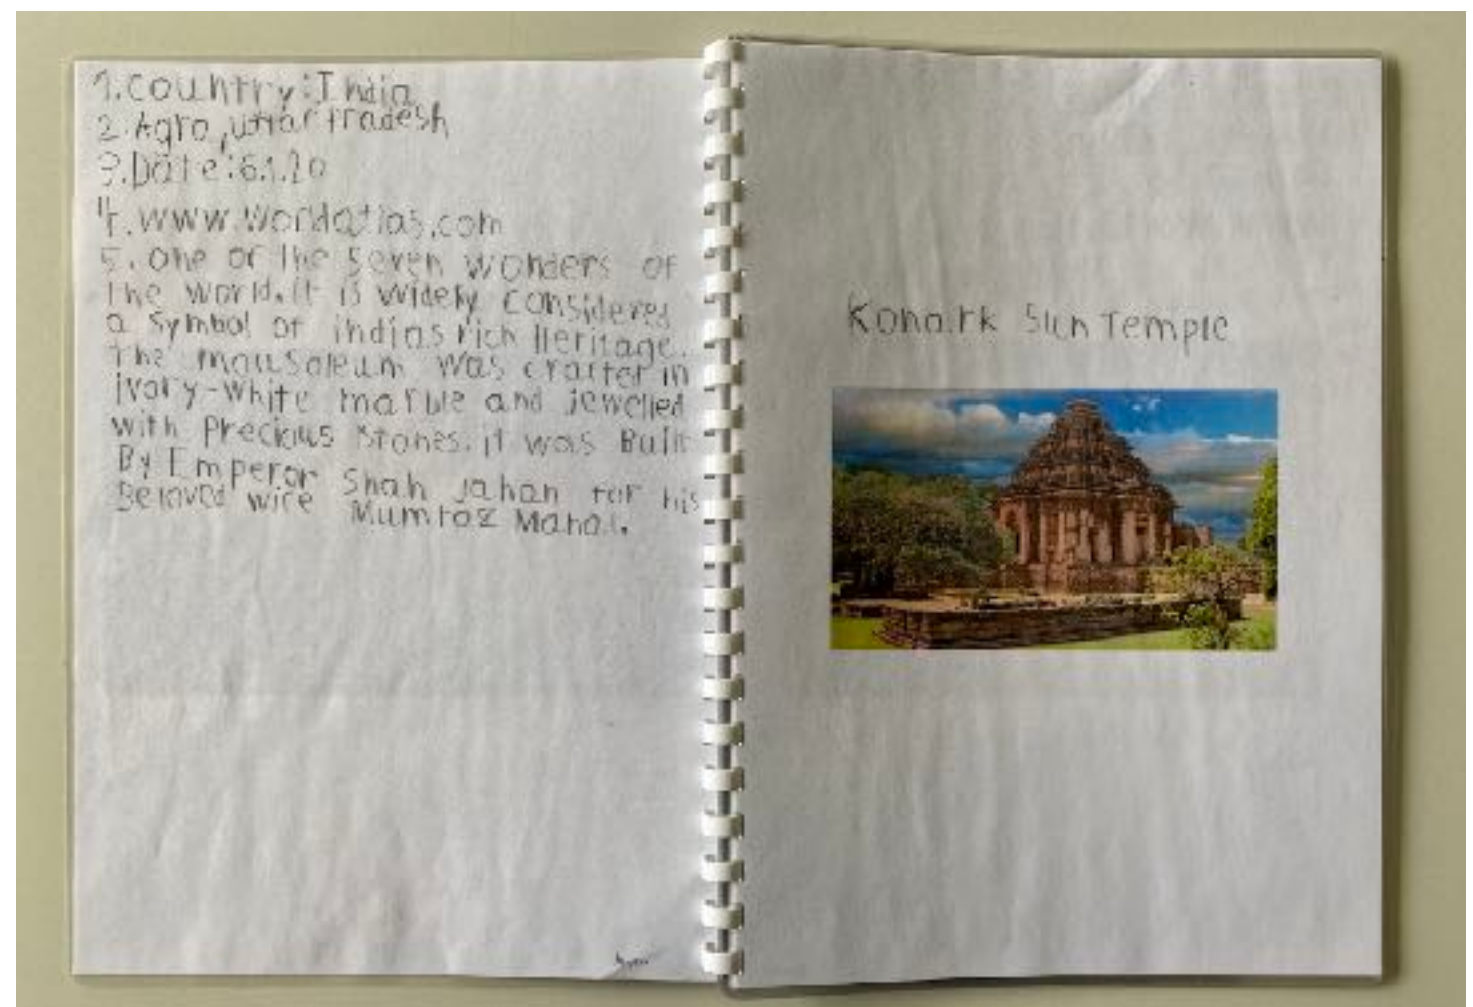 1. Country: India
2. Agra, Uttar Pradesh
3. Date: 6.1.20
4. www.worldatlas.com
5. One of the seven wonders of
the world. it is widely considered
a symbol of indias rich Heritage.
The mausoleum was crafter in
ivory-white marble and jewelled
with Precious Stones. it was Built
By Emperor Shah Jahan for his
Beloved wife Mumtaz Mahal.
Konark Sun Temple